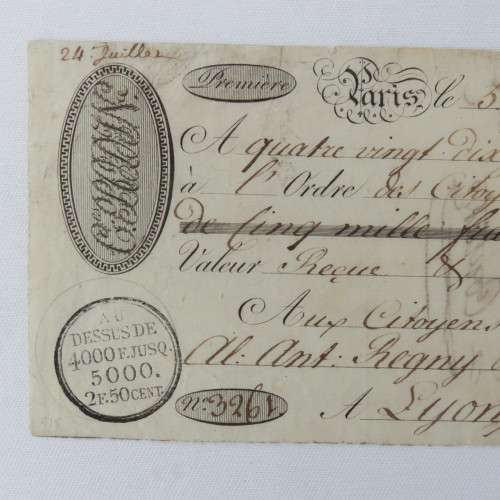 24 Juillet
Première
Paris, le 5
A quatre vingt dix
à l'Ordre des Citoy
de Cinq mille fra
Valeur Reçue &
Aux Citoyen
Al: Ant: Regny
N° 3261
A Lyon
AU
DESSUS DE
4000 F. JUSQ.
5000.
2F. 50 CENT.